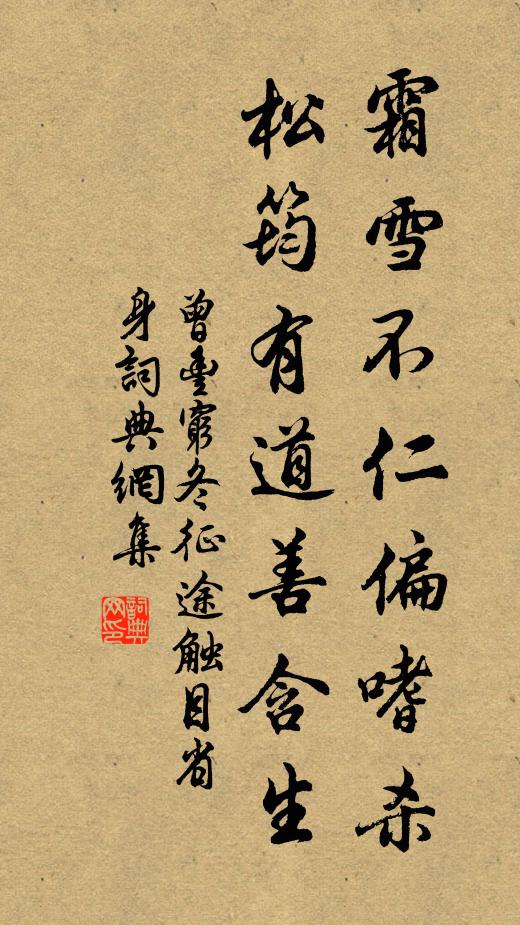 霜雪不仁偏嗜杀
松筠有道善含生
曾豊窮冬征途触目省
身詞典網集
詞典
网印